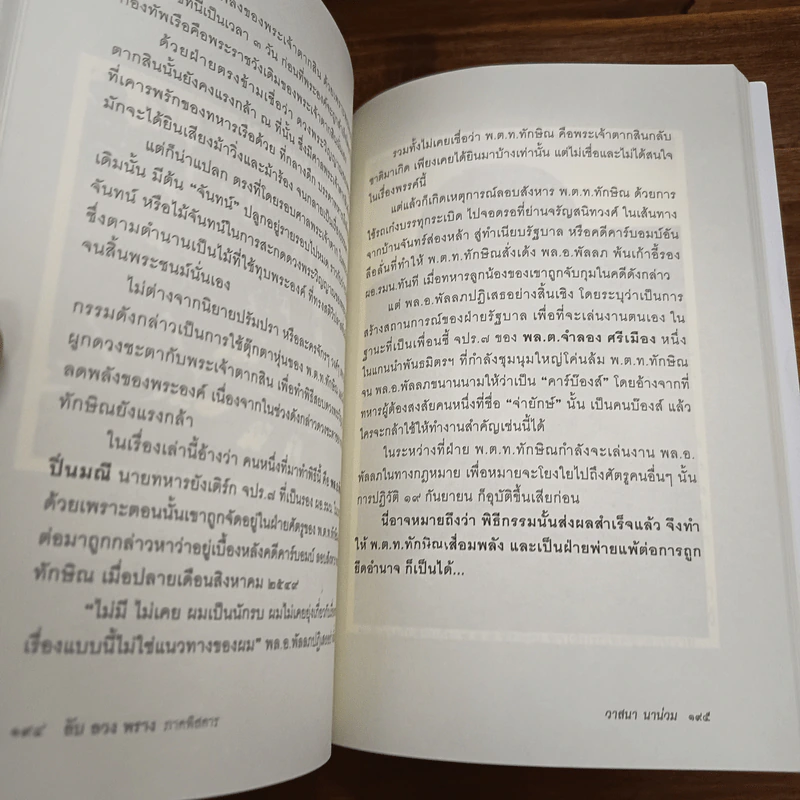 พลังของพระเจ้าตากสิน ด้วยพ
ที่นี่เป็นเวลา ๓ วัน ก่อนที่พระองค์จะถูก
กองทัพเรือคือพระราชวังเดิมของพระเจ้าตากสิน
ด้วยฝ่ายตรงข้ามเชื่อว่า ดวงพระวิญญาณ
ตากสินนั้นยังคงแรงกล้า ณ ที่นั้น ซึ่งมีศาลพระเจ้าตาก
ที่เคารพรักของทหารเรือด้วย ที่กลางดึก บรรดาทหาร
มักจะได้ยินเสียงม้าวิ่งและม้าร้อง จนกลายเป็น
แต่ก็น่าแปลก ตรงที่โดยรอบศาลพระเจ้าตาก
เดิมนั้น มีต้น “จันทน์” ปลูกอยู่รายรอบไปหมด
จันทน์ หรือไม้จันทน์ในการสะกดดวงพระวิญญาณ
ซึ่งตามตำนานเป็นไม้ที่ใช้ทุบพระองค์ ที่ทรงสติ
จนสิ้นพระชนม์นั่นเอง
ไม่ต่างจากนิยายปรัมปรา หรือละครจักรๆ วงศ์ๆ
กรรมดังกล่าวเป็นการใช้ตุ๊กตาหุ่นของ พ.ต.ท.ทักษิณ
ผูกดวงชะตากับพระเจ้าตากสิน เพื่อทำพิธีสอบดวงพระ
ลดพลังของพระองค์ เนื่องจากในช่วงดังกล่าวดวงชะตา
ทักษิณยังแรงกล้า
ในเรื่องเล่านี้อ้างว่า คนหนึ่งที่มาทำพิธีนี้ คือ พล.อ.พัลลภ
ปิ่นมณี นายทหารยังเติร์ก จปร.๗ ที่เป็นรอง ผอ.รมน.
ด้วยเพราะตอนนั้นเขาถูกจัดอยู่ในฝ่ายศัตรูของ พ.ต.ท.ทักษิณ
ต่อมาถูกกล่าวหาว่าอยู่เบื้องหลังคดีคาร์บอมบ์
ทักษิณ เมื่อปลายเดือนสิงหาคม ๒๕๔๙
“ไม่มี ไม่เคย ผมเป็นนักรบ ผมไม่เคยยุ่งเกี่ยวกับ
เรื่องแบบนี้ไม่ใช่แนวทางของผม” พล.อ.พัลลภปฏิเสธ
๑๙๔ ลับ ลวง พราง ภาคพิสดาร
รวมทั้งไม่เคยเชื่อว่า พ.ต.ท.ทักษิณ คือพระเจ้าตากสินกลับ
ชาติมาเกิด เพียงเคยได้ยินมาบ้างเท่านั้น แต่ไม่เชื่อและไม่ได้สนใจ
ในเรื่องพรรค์นี้
แต่แล้วก็เกิดเหตุการณ์ลอบสังหาร พ.ต.ท.ทักษิณ ด้วยการ
ใช้รถเก๋งบรรทุกระเบิด ไปจอดรอที่ย่านจรัญสนิทวงศ์ ในเส้นทาง
จากบ้านจันทร์ส่องหล้า สู่ทำเนียบรัฐบาล หรือคดีคาร์บอมบ์อัน
ลือลั่นที่ทำให้ พ.ต.ท.ทักษิณสั่งเด้ง พล.อ.พัลลภ พ้นเก้าอี้รอง
ผอ.รมน.ทันที เมื่อทหารลูกน้องของเขาถูกจับกุมในคดีดังกล่าว
แต่ พล.อ.พัลลภปฏิเสธอย่างสิ้นเชิง โดยระบุว่าเป็นการ
สร้างสถานการณ์ของฝ่ายรัฐบาล เพื่อที่จะเล่นงานตนเอง ใน
ฐานะที่เป็นเพื่อนซี้ จปร.๗ ของ พล.ต.จำลอง ศรีเมือง หนึ่ง
ในแกนนำพันธมิตรฯ ที่กำลังชุมนุมใหญ่โค่นล้ม พ.ต.ท.ทักษิณ
จน พล.อ.พัลลภขนานนามให้ว่าเป็น “คาร์บ๊องส์” โดยอ้างจากที่
ทหารผู้ต้องสงสัยคนหนึ่งที่ชื่อ “จ่ายักษ์” นั้น เป็นคนบ๊องส์ แล้ว
ใครจะกล้าใช้ให้ทำงานสำคัญเช่นนี้ได้
ในระหว่างที่ฝ่าย พ.ต.ท.ทักษิณกำลังจะเล่นงาน พล.อ.
พัลลภในทางกฎหมาย เพื่อหมายจะโยงใยไปถึงศัตรูคนอื่นๆ นั้น
การปฏิวัติ ๑๙ กันยายน ก็อุบัติขึ้นเสียก่อน
นี่อาจหมายถึงว่า พิธีกรรมนั้นส่งผลสำเร็จแล้ว จึงทำ
ให้ พ.ต.ท.ทักษิณเสื่อมพลัง และเป็นฝ่ายพ่ายแพ้ต่อการถูก
ยึดอำนาจ ก็เป็นได้...
วาสนา นาน่วม ๑๙๕